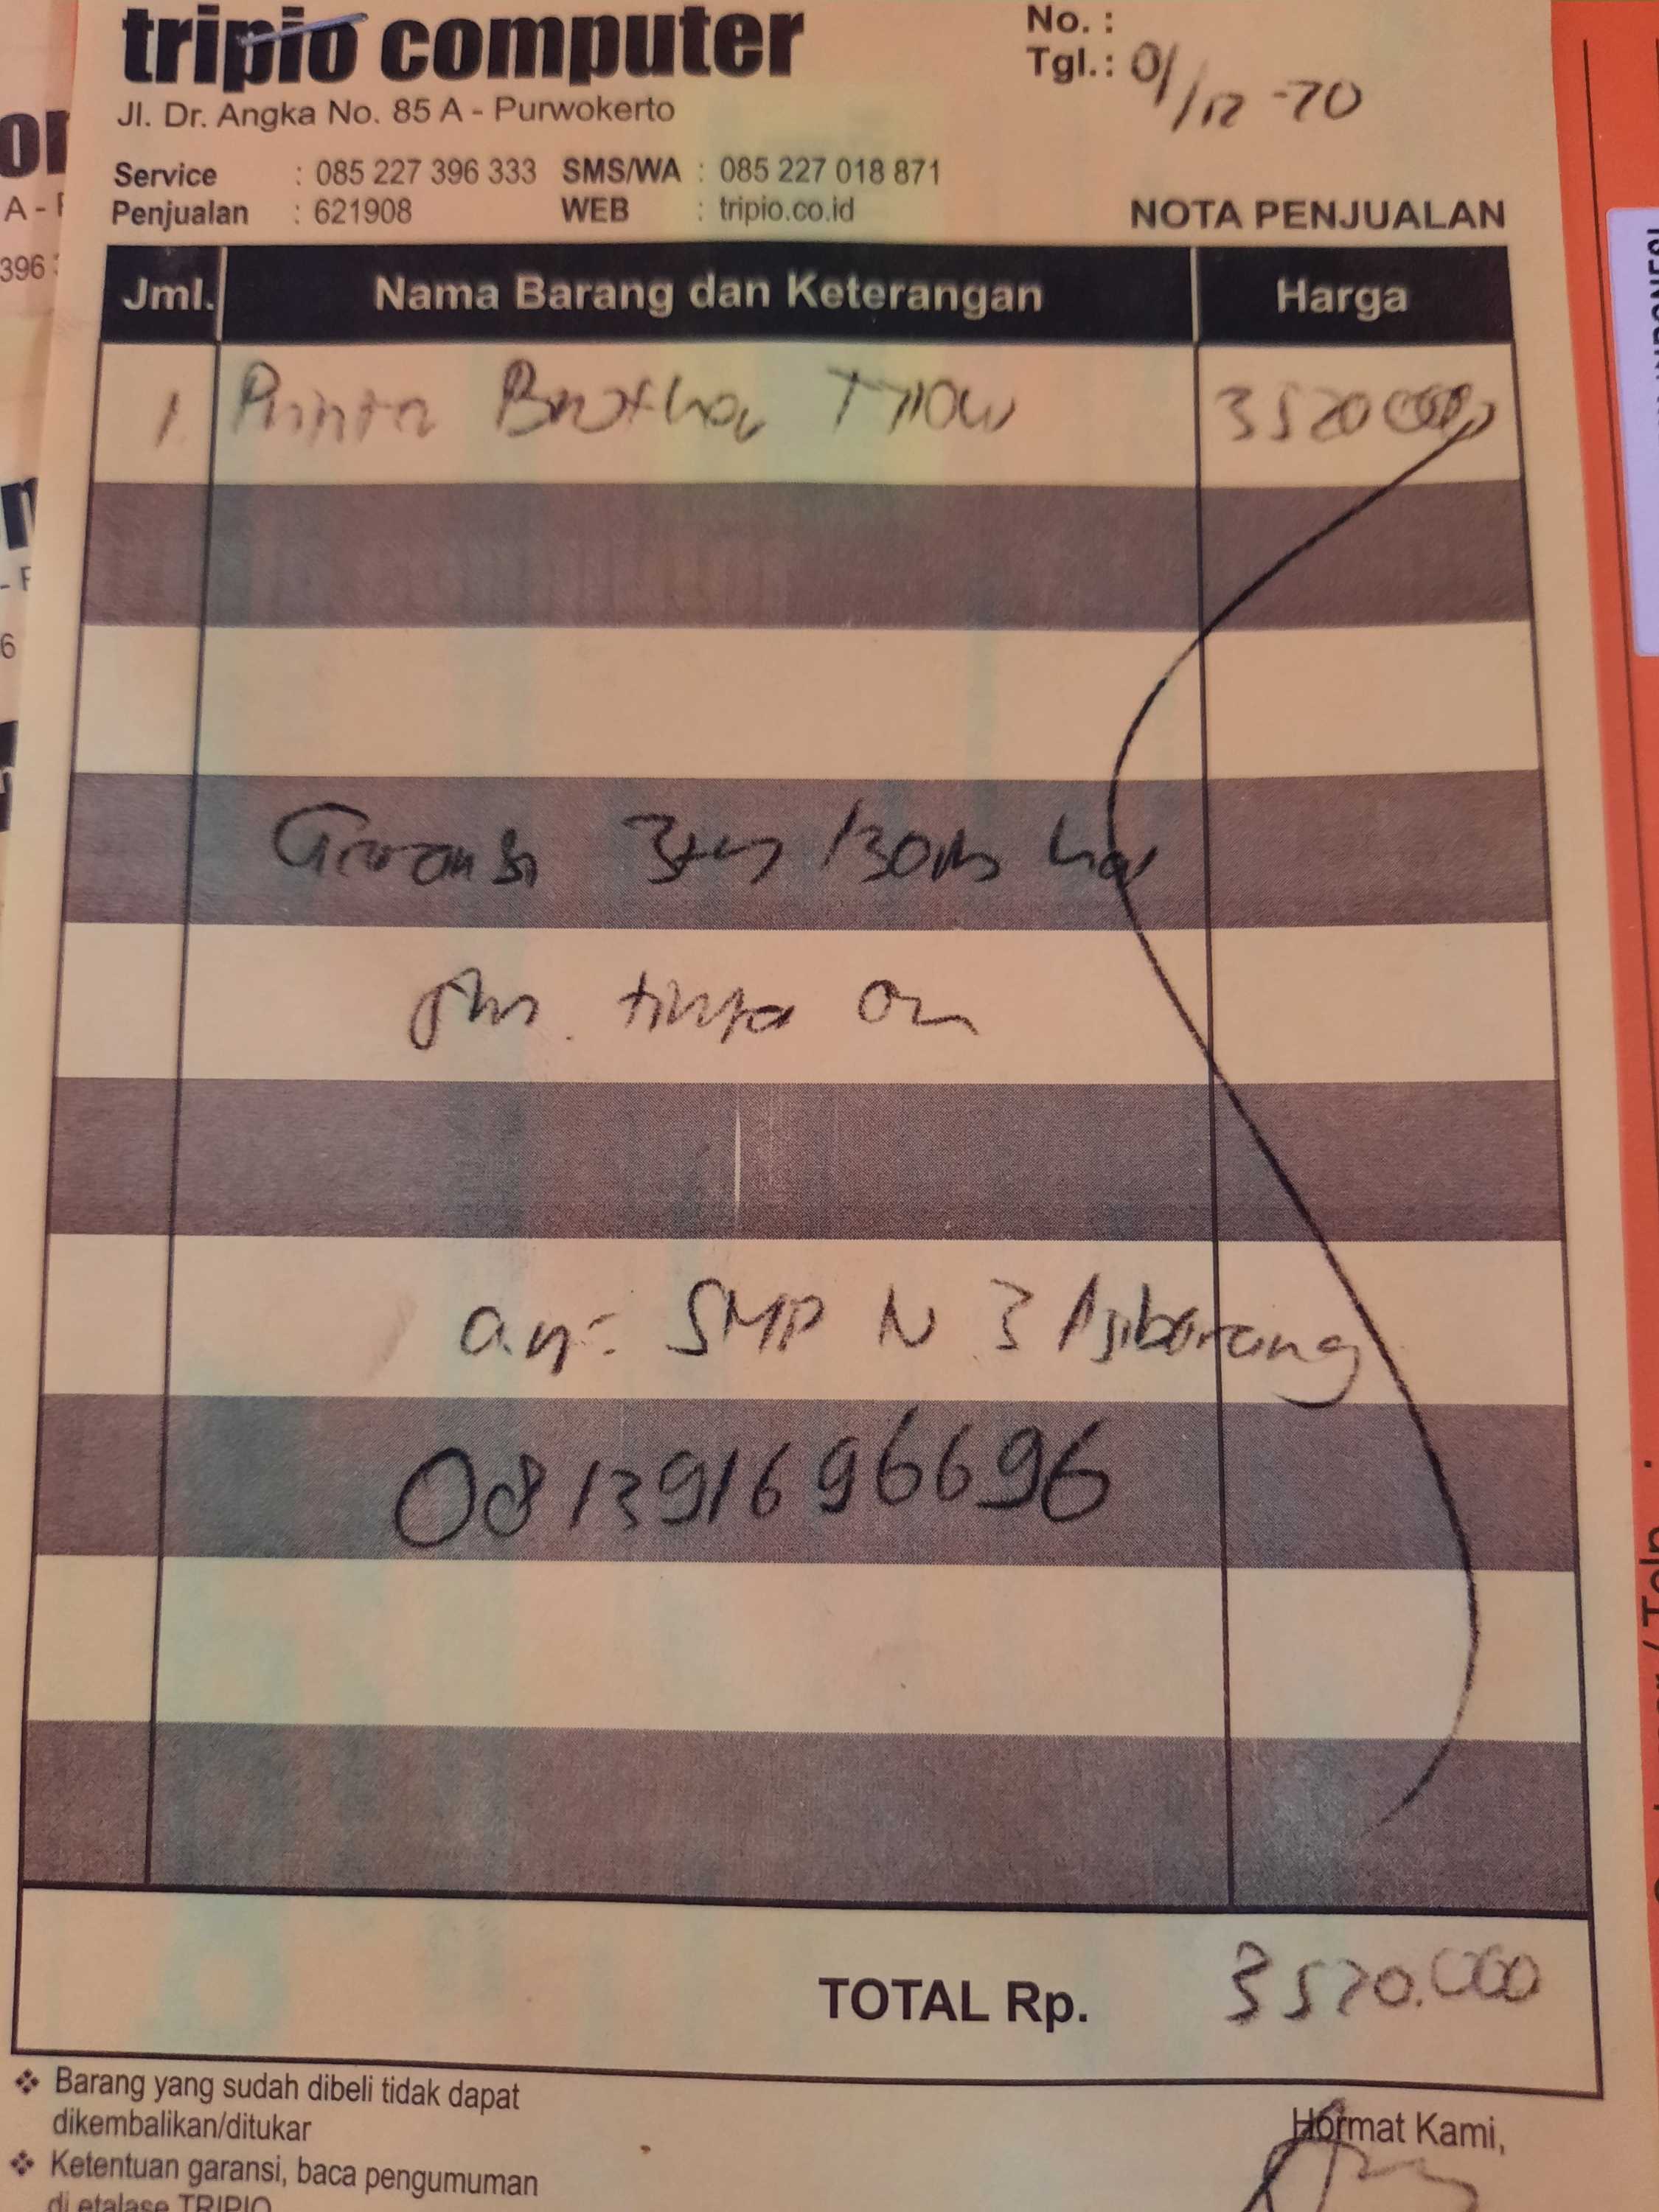 tripio computer
No. :
Tgl.: 01/12-20
Jl. Dr. Angka No. 85 A - Purwokerto
Service : 085 227 396 333 SMS/WA : 085 227 018 871
Penjualan : 621908 WEB : tripio.co.id
NOTA PENJUALAN
Jml. Nama Barang dan Keterangan Harga
1. Printer Brother T710W 3520000
Garansi 3th /30rb
tinta ori
a.n: SMP N 3 Ajibarang
081391696696
TOTAL Rp. 3520.000
❖ Barang yang sudah dibeli tidak dapat
dikembalikan/ditukar
❖ Ketentuan garansi, baca pengumuman
di etalase TRIPIO
Hormat Kami,